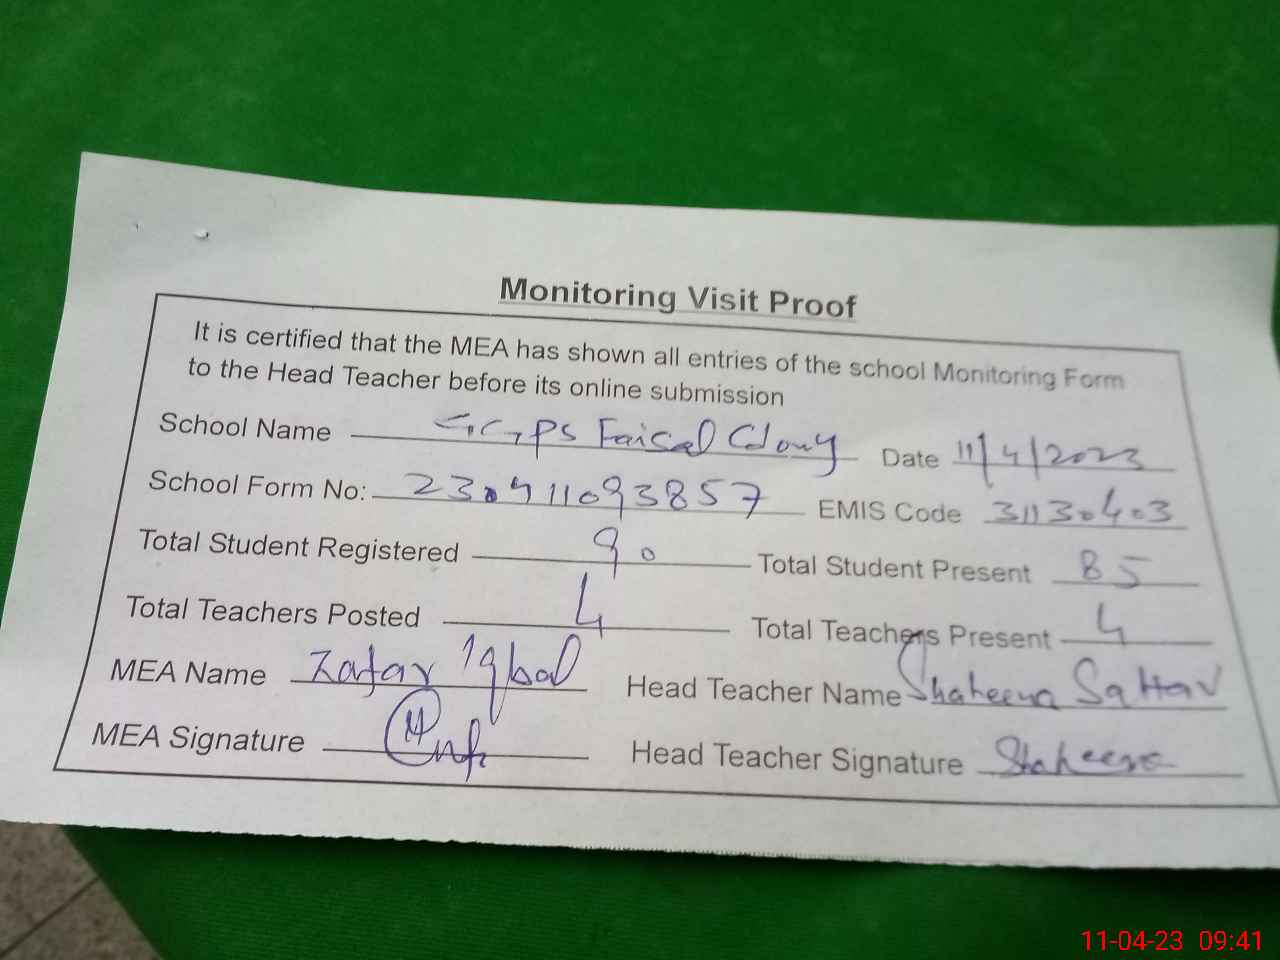 Monitoring Visit Proof
It is certified that the MEA has shown all entries of the school Monitoring Form
to the Head Teacher before its online submission
School Name GGPS Faisal Colony Date 11/4/2023
School Form No: 230411093857 EMIS Code 31130403
Total Student Registered 90 Total Student Present 85
Total Teachers Posted 4 Total Teachers Present 4
MEA Name Zafar Iqbal Head Teacher Name Shaheena Sattar
MEA Signature Head Teacher Signature Shaheena
11-04-23 09:41